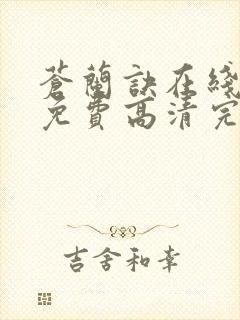 蒼蘭訣在綫
免費高清完
吉舍和幸